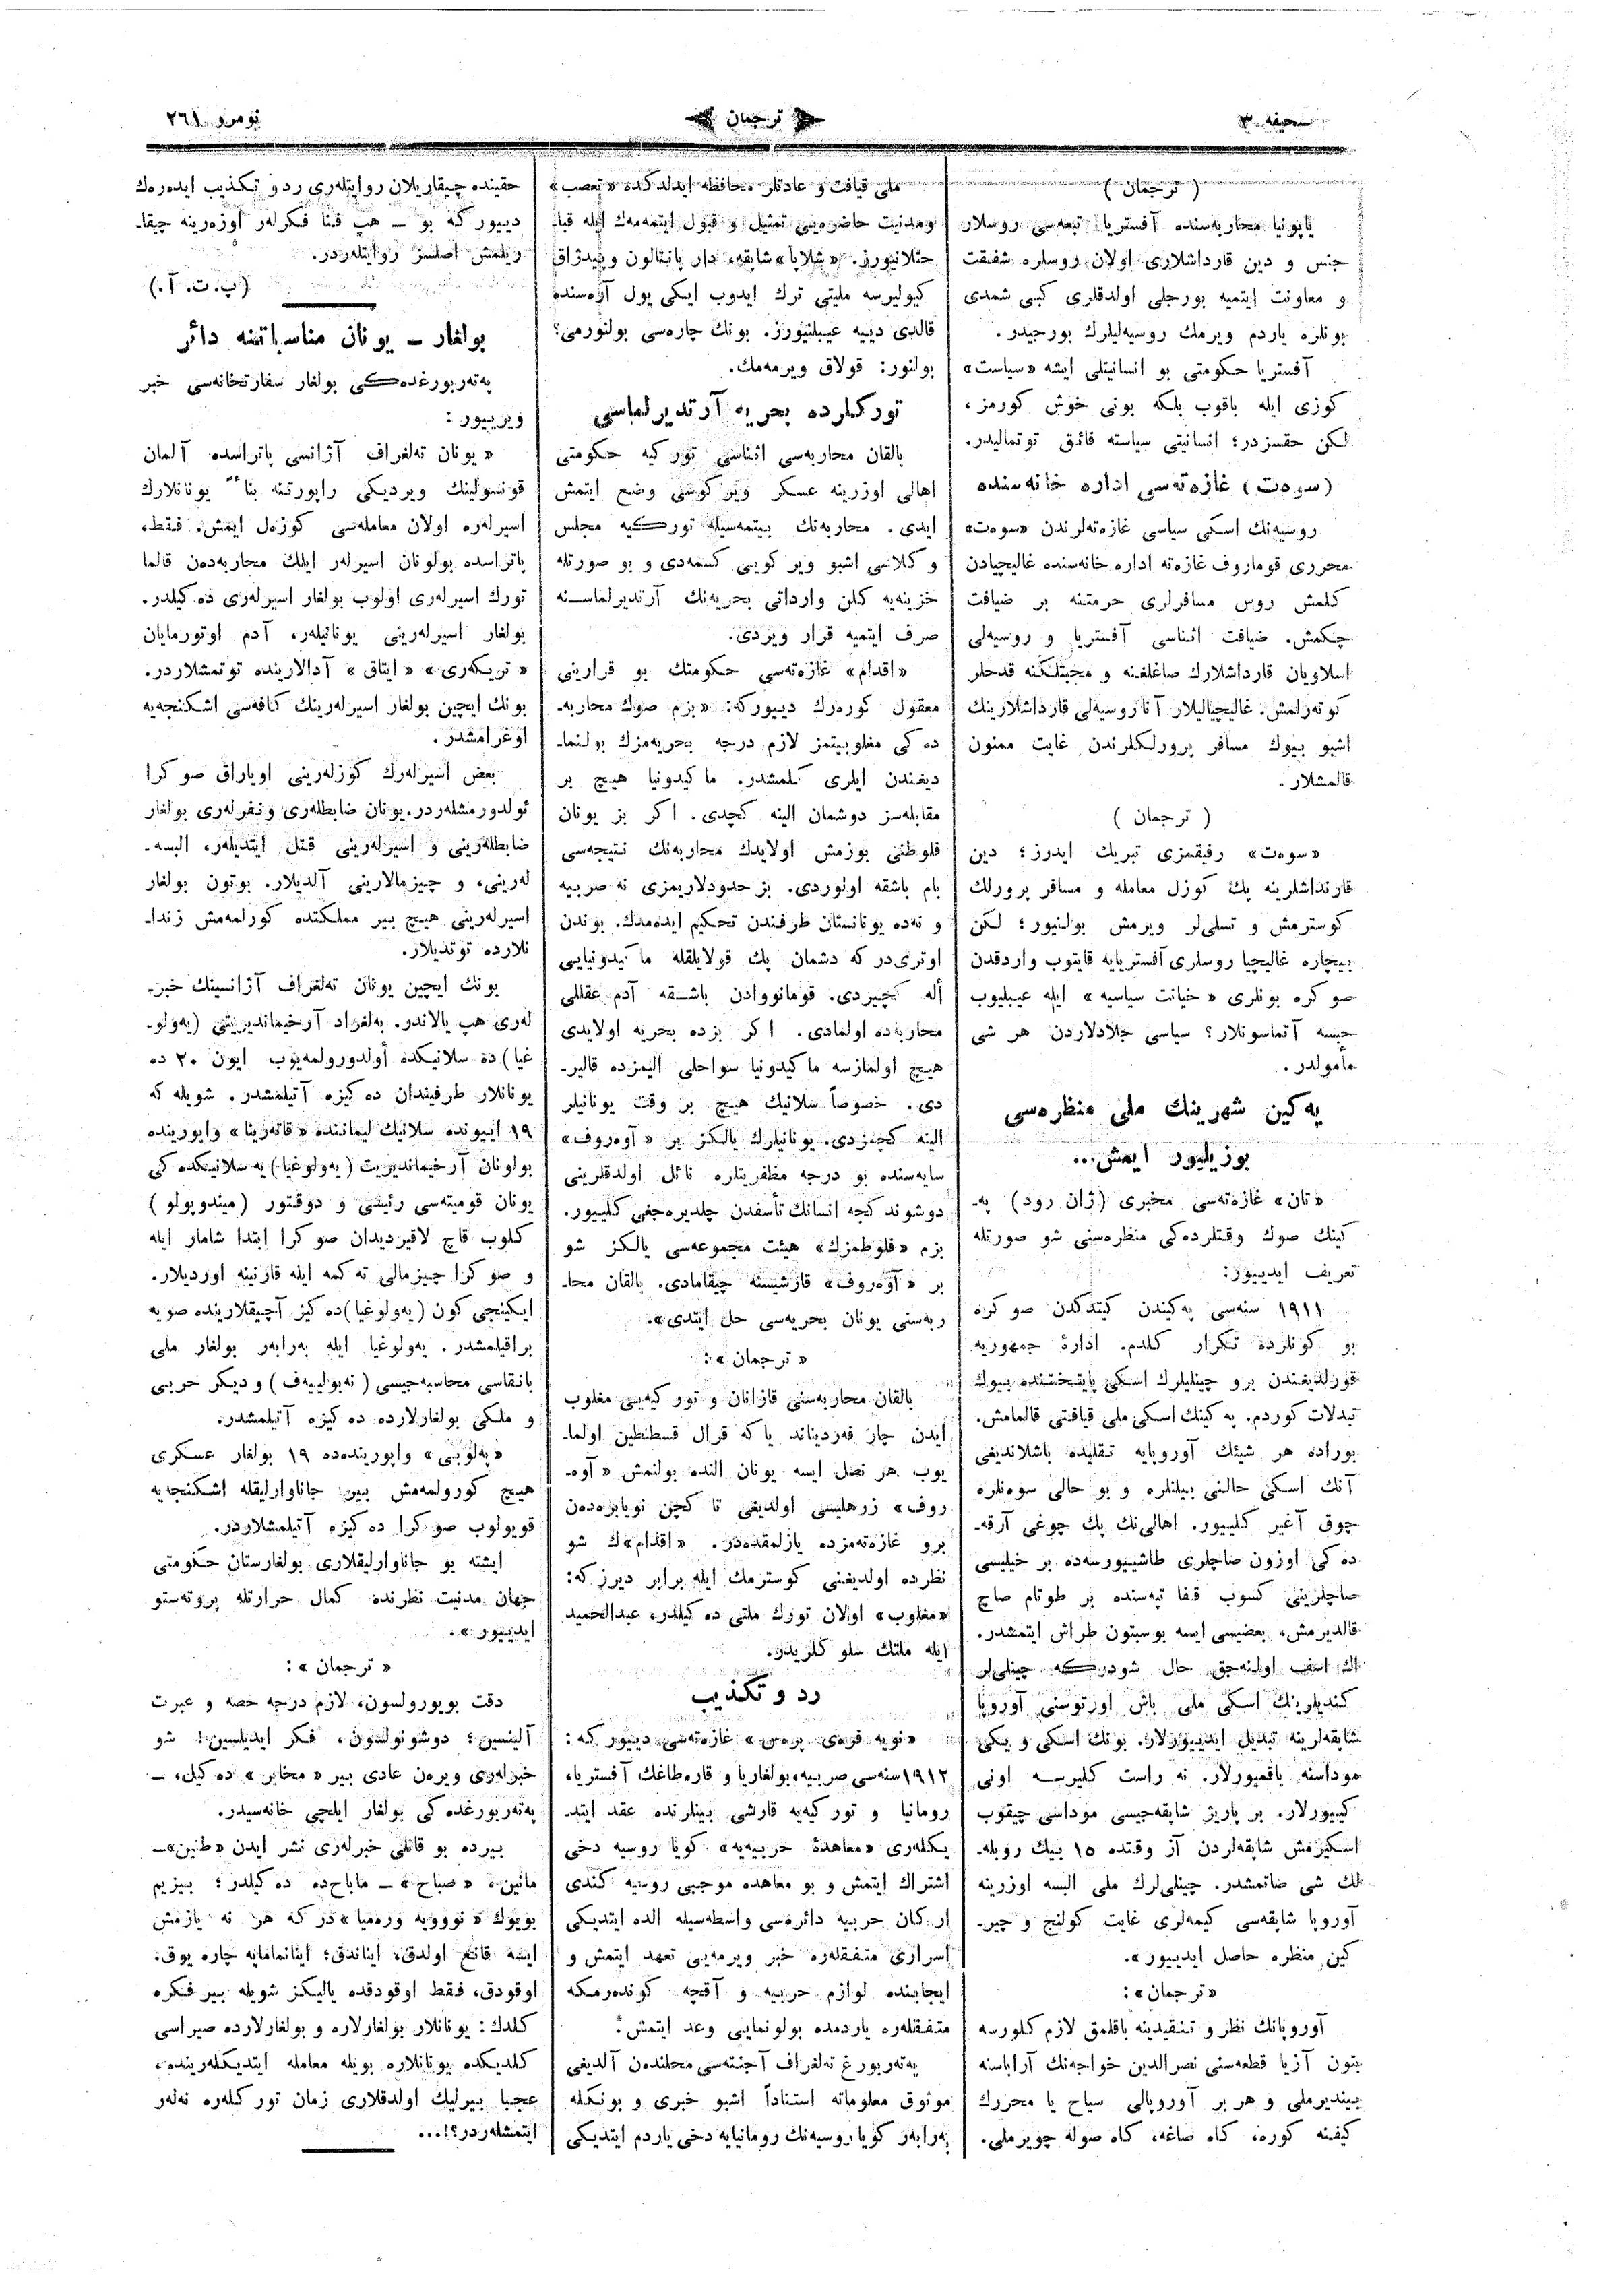 صحیفه ۳
ترجمان
نومرو ۲٦۱
( ترجمان )
یاپونیا محاربه‌سنده آفستریا تبعه‌سی روسلار
جنس و دین قارداشلاری اولان روسلره شفقت
و معاونت ایتمیه بورجلی اولدقلری کبی شمدی
بونلره یاردم ویرمك روسیه‌لیلرك بورجیدر.
آفستریا حکومتی بو انسانیتلی ایشه «سیاست»
کوزی ایله باقوب بلکه بونی خوش کورمز،
لکن حقسزدر؛ انسانیتی سیاسته فائق توتمالیدر.
(سوه‌ت) غازه‌ته‌سی اداره خانه‌سنده
روسیه‌نك اسکی سیاسی غازه‌ته‌لرندن «سوه‌ت»
محرری قوماروف غازه‌ته اداره خانه‌سنده غالیچیادن
کلمش روس مسافرلری حرمتنه بر ضیافت
چکمش. ضیافت اثناسی آفستریا و روسیه‌لی
اسلاویان قارداشلارك صاغلغنه و محبتلکنه قدحلر
کوته‌رلمش. غالیچیالیلار آنا روسیه‌لی قارداشلارینك
اشبو بیوك مسافر پرورلکلرندن غایت ممنون
قالمشلار.
( ترجمان )
«سوه‌ت» رفیقمزی تبریك ایدرز؛ دین
قارنداشلرینه پك کوزل معامله و مسافر پرورلك
کوسترمش و تسلی‌لر ویرمش بولنیور؛ لکن
بیچاره غالیچیا روسلری آفستریایه قایتوب واردقدن
صوکره بونلری «خیانت سیاسیه» ایله عیبلیوب
حبسه آتماسونلار؟ سیاسی جلادلاردن هر شی
مأمولدر.
په‌کین شهرینك ملی منظره‌سی
بوزیلیور ایمش...
«تان» غازه‌ته‌سی مخبری (ژان رود) په‌ـ
کینك صوك وقتلرده‌کی منظره‌سنی شو صورتله
تعریف ایدییور:
۱۹۱۱ سنه‌سی په‌کیندن کیتدکدن صوکره
بو کونلرده تکرار کلدم. ادارهٔ جمهوریه
قورلدیغندن برو چینلیلرك اسکی پایتختنده بیوك
تبدلات کوردم. په‌کینك اسکی ملی قیافتی قالمامش.
بوراده هر شیئك آوروپایه تقلیده باشلاندیغی
آنك اسکی حالنی بیلنلره و بو حالی سوه‌نلره
چوق آغیر کلییور. اهالی‌نك پك چوغی آرقه‌ـ
ده‌کی اوزون صاچلری طاشییورسه‌ده بر خیلیسی
صاچلرینی کسوب قفا تپه‌سنده بر طوتام صاچ
قالدیرمش، بعضیسی ایسه بوسبتون طراش ایتمشدر.
اك اسف اولنه‌جق حال شودرکه چینلی‌لر
کندیلرینك اسکی ملی باش اورتوسنی آوروپا
شاپقه‌لرینه تبدیل ایدییورلار. بونك اسکی و یکی
موداسنه باقمیورلار. نه راست کلیرسه اونی
کییورلار. بر پاریژ شاپقه‌جیسی موداسی چیقوب
اسکیزمش شاپقه‌لردن آز وقتده ۱۵ بیك روبله‌ـ
لك شی صاتمشدر. چینلی‌لرك ملی البسه اوزرینه
آوروپا شاپقه‌سی کیمه‌لری غایت کولنج و چیرـ
کین منظره حاصل ایدییور».
«ترجمان»:
آوروپانك نظر و تنقیدینه باقلمق لازم کلورسه
بتون آزیا قطعه‌سنی نصرالدین خواجه‌نك آراباسنه
بیندیرملی و هر بر آوروپالی سیاح یا محررك
کیفنه کوره، کاه صاغه، کاه صوله چویرملی.
ملی قیافت و عادتلر محافظه ایدلدکده «تعصب»
ومدنیت حاضره‌یی تمثیل و قبول ایتمه‌مه‌ك ایله قباـ
حتلانیورز. «شلاپا» شاپقه، دار پانتالون و پیدژاق
کیولیرسه ملیتی ترك ایدوب ایکی یول آره‌سنده
قالدی دییه عیبلنیورز. بونك چاره‌سی بولنورمی؟
بولنور: قولاق ویرمه‌مك.
تورکلرده بحریه آرتدیرلماسی
بالقان محاربه‌سی اثناسی تورکیه حکومتی
اهالی اوزرینه عسکر ویرکوسی وضع ایتمش
ایدی. محاربه‌نك بیتمه‌سیله تورکیه مجلس
وکلاسی اشبو ویرکویی کسمه‌دی و بو صورتله
خزینه‌یه کلن وارداتی بحریه‌نك آرتدیرلماسنه
صرف ایتمیه قرار ویردی.
«اقدام» غازه‌ته‌سی حکومتك بو قرارینی
معقول کوره‌رك دییورکه: «بزم صوك محاربه‌ـ
ده‌کی مغلوبیتمز لازم درجه بحریه‌مزك بولنماـ
دیغندن ایلری کلمشدر. ماکیدونیا هیچ بر
مقابله‌سز دوشمان الینه کچدی. اکر بز یونان
فلوطنی بوزمش اولایدك محاربه‌نك نتیجه‌سی
بام باشقه اولوردی. بز حدودلاریمزی نه صربیه
و نه‌ده یونانستان طرفندن تحکیم ایده‌مدك. بوندن
اوتری‌درکه دشمان پك قولایلقله ماکیدونیایی
أله کچیردی. قومانووادن باشقه آدم عقللی
محاربه‌ده اولمادی. اکر بزده بحریه اولایدی
هیچ اولمازسه ماکیدونیا سواحلی المیزده قالیرـ
دی. خصوصاً سلانیك هیچ بر وقت یونانیلر
الینه کچمزدی. یونانیلرك یالکز بر «آوه‌روف»
سایه‌سنده بو درجه مظفریتلره نائل اولدقلرینی
دوشوندکجه انسانك تأسفدن چلدیره‌جغی کلییور.
بزم «فلوطمزك» هیئت مجموعه‌سی یالکز شو
بر «آوه‌روف» قارشیسنه چیقامادی. بالقان محاـ
ربه‌سنی یونان بحریه‌سی حل ایتدی».
«ترجمان»:
بالقان محاربه‌سنی قازانان و تورکیه‌یی مغلوب
ایدن چار فه‌ردیناند یاکه قرال قسطنطین اولماـ
یوب هر نصل ایسه یونان النده بولنمش «آوه‌ـ
روف» زرهلیسی اولدیغی تا کچن نویابره‌ده‌ن
برو غازه‌ته‌مزده یازلمقده‌در. «اقدام»ك شو
نظرده اولدیغنی کوسترمك ایله برابر دیرزکه:
«مغلوب» اولان تورك ملتی ده‌کیلدر، عبدالحمید
ایله ملتك سلوکلریدر.
رد و تکذیب
«نویه فره‌ی پره‌س» غازه‌ته‌سی دییورکه:
۱۹۱۲ سنه‌سی صربیه، بولغاریا و قاره‌طاغك آفستریا،
رومانیا و تورکیه‌یه قارشی بینلرنده عقد ایتدـ
یکله‌ری «معاهدهٔ حربیه‌یه» کویا روسیه دخی
اشتراك ایتمش و بو معاهده موجبی روسیه کندی
ارکان حربیه دائره‌سی واسطه‌سیله الده ایتدیکی
اسراری متفقله‌ره خبر ویرمه‌یی تعهد ایتمش و
ایجابنده لوازم حربیه و آقچه کونده‌رمکه
متفقله‌ره یاردمده بولونمایی وعد ایتمش.
په‌ته‌ربورغ ته‌لغراف آجنته‌سی محلنده‌ن آلدیغی
موثوق معلوماته استناداً اشبو خبری و بونکله
به‌رابه‌ر کویا روسیه‌نك رومانیایه دخی یاردم ایتدیکی
حقینده چیقاریلان روایتله‌ری رد و تکذیب ایده‌ره‌ك
دییورکه بو ـ هپ فنا فکرله‌ر اوزه‌رینه چیقاـ
ریلمش اصلسز روایتله‌ردر.
(پ. ت. آ.)
بولغار ـ یونان مناسباتنه دائر
په‌ته‌ربورغده‌کی بولغار سفارتخانه‌سی خبر
ویرییور:
«یونان ته‌لغراف آژانسی پاتراسده آلمان
قونسولینك ویردیکی راپورتنه بناءً یونانلارك
اسیرله‌ره اولان معامله‌سی کوزه‌ل ایمش. فقط،
پاتراسده بولونان اسیرله‌ر ایلك محاربه‌ده‌ن قالما
تورك اسیرله‌ری اولوب بولغار اسیرله‌ری ده‌کیلدر.
بولغار اسیرله‌رینی یونانیله‌ر، آدم اوتورمایان
«تریکه‌ری» «ایتاق» آدالارینده توتمشلاردر.
بونك ایچین بولغار اسیرله‌رینك کافه‌سی اشکنجه‌یه
اوغرامشدر.
بعض اسیرله‌رك کوزله‌رینی اویاراق صوکرا
ئولدورمشله‌ردر. یونان ضابطله‌ری و نفرله‌ری بولغار
ضابطله‌رینی و اسیرله‌رینی قتل ایتدیله‌ر، البسه‌ـ
له‌رینی، و چیزمالارینی آلدیلار. بوتون بولغار
اسیرله‌رینی هیچ بیر مملکتده کورلمه‌مش زنداـ
نلارده توتدیلار.
بونك ایچین یونان ته‌لغراف آژانسینك خبرـ
له‌ری هپ یالاندر. به‌لغراد آرخیماندیریتی (یه‌ولوـ
غیا) ده سلانیکده أولدورولمه‌یوب ایون ۲۰ ده
یونانلار طرفیندان ده‌کیزه آتیلمشدر. شویله که
۱۹ اییونده سلانیك لیماننده «قاته‌رینا» واپورینده
بولونان آرخیماندیریت (یه‌ولوغیا) یه سلانیکده‌کی
یونان قومیته‌سی رئیسی و دوقتور (میندوپولو)
کلوب قاچ لاقیردیدان صوکرا ابتدا شامار ایله
و صوکرا چیزمالی ته‌کمه ایله قارنینه اوردیلار.
ایکینجی کون (یه‌ولوغیا) ده‌کیز آچیقلارینده صویه
براقیلمشدر. یه‌ولوغیا ایله به‌رابه‌ر بولغار ملی
بانقاسی محاسبه‌جیسی (نه‌بولییه‌ف) و دیکر حربی
و ملکی بولغارلارده ده‌کیزه آتیلمشدر.
«په‌لوپی» واپورینده‌ده ۱۹ بولغار عسکری
هیچ کورولمه‌مش بیر جاناوارلیقله اشکنجه‌یه
قویولوب صوکرا ده‌کیزه آتیلمشلاردر.
ایشته بو جاناوارلیقلاری بولغارستان حکومتی
جهان مدنیت نظرنده کمال حرارتله پروته‌ستو
ایدییور».
«ترجمان»:
دقت بویورولسون، لازم درجه حصه و عبرت
آلینسین؛ دوشونولسون، فکر ایدیلسین! شو
خبرله‌ری ویره‌ن عادی بیر «مخابر» ده‌کیل، ـ
په‌ته‌ربورغده‌کی بولغار ایلچی خانه‌سیدر.
بیرده بو قانلی خبرله‌ری نشر ایدن «طنین»ـ
مانین، «صباح» ـ ماباح‌ده ده‌کیلدر؛ بیزیم
بویوك «نوویه وره‌میا» درکه هر نه یازمش
ایسه قانع اولدق، ایناندق؛ اینانمامایه چاره یوق.
اوقودق، فقط اوقودقده یالیکز شویله بیر فکره
کلدك: یونانلار بولغارلاره و بولغارلارده صیراسی
کلدیکده یونانلاره بویله معامله ایتدیکله‌رینده،
عجبا بیرلیك اولدقلاری زمان تورکله‌ره نه‌له‌ر
ایتمشله‌ردر؟!...